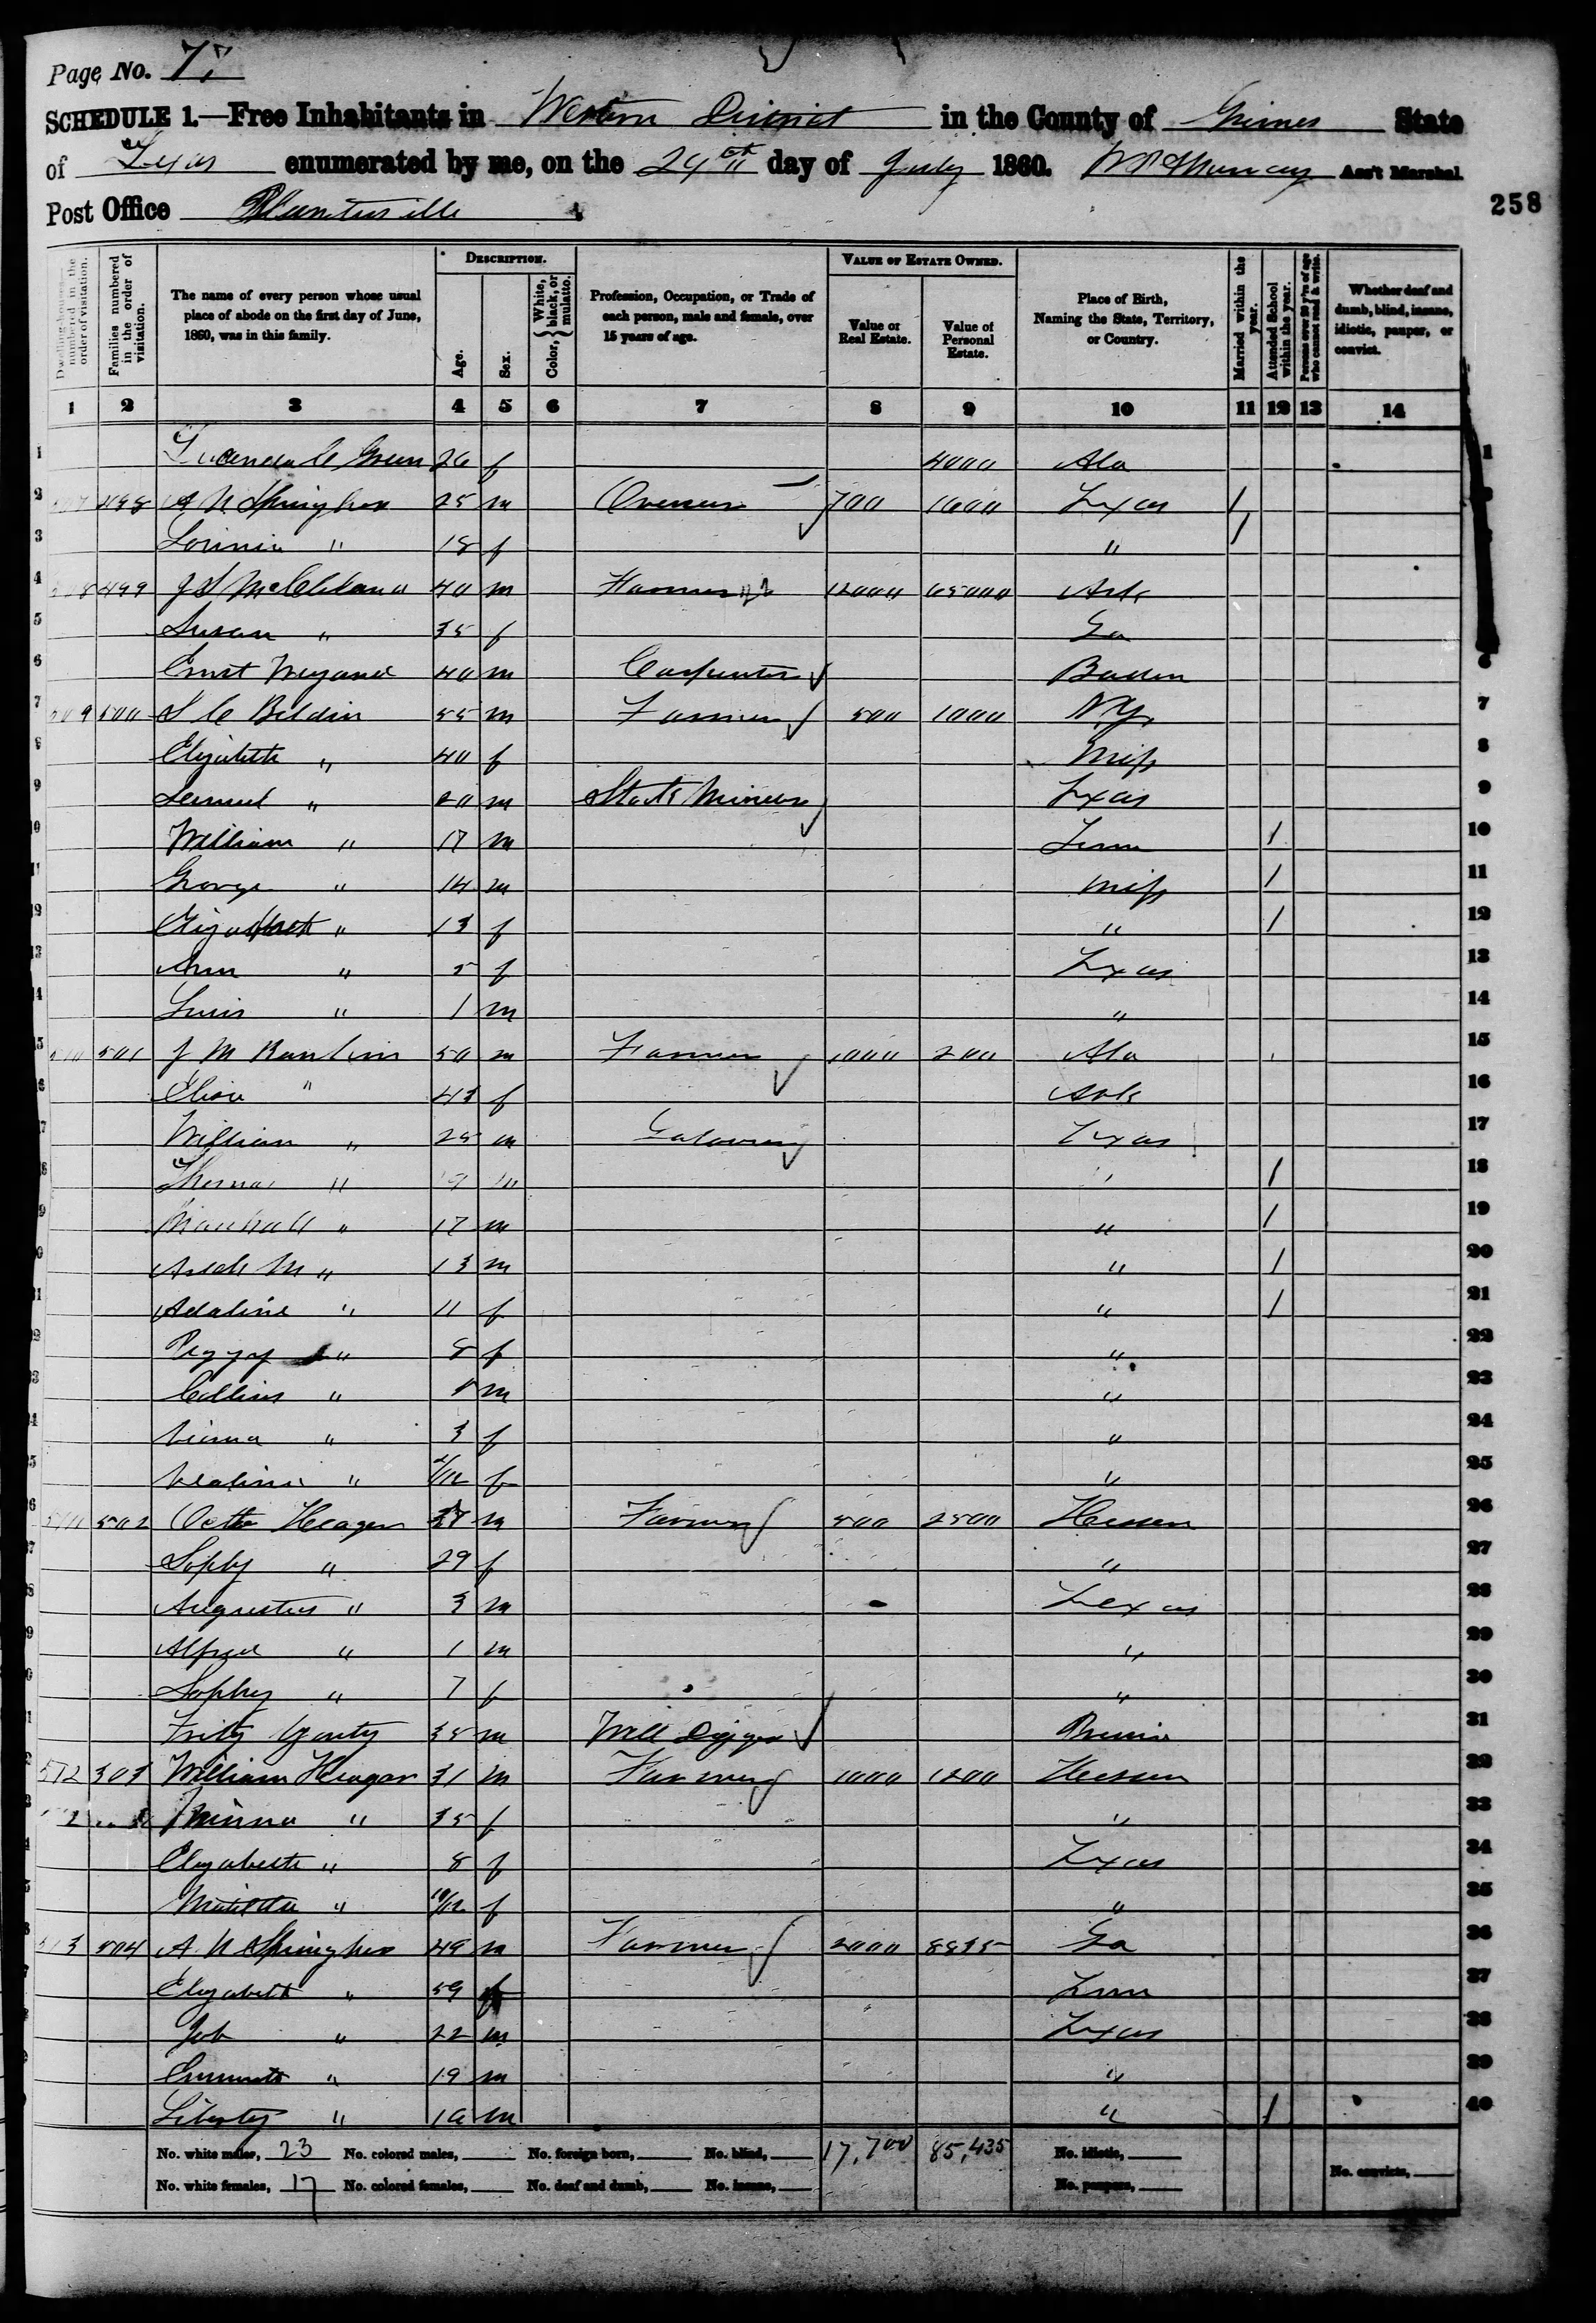 Page No. 77
SCHEDULE 1.—Free Inhabitants in Western District in the County of Grimes State
of Texas enumerated by me, on the 24th day of July 1860. Ass't Marshal.
Post Office Plantersville
258
Dwelling-houses numbered in the order of visitation.
Families numbered in the order of visitation.
The name of every person whose usual place of abode on the first day of June, 1860, was in this family.
Description.
Age.
Sex.
Color, { White, black, or mulatto.
Profession, Occupation, or Trade of each person, male and female, over 15 years of age.
Value of Estate Owned.
Value of Real Estate.
Value of Personal Estate.
Place of Birth, Naming the State, Territory, or Country.
Married within the year.
Attended School within the year.
Persons over 20 y'rs of age who cannot read & write.
Whether deaf and dumb, blind, insane, idiotic, pauper, or convict.
1 2 3 4 5 6 7 8 9 10 11 12 13 14
1 Green 26 f 4000 Ala 1
2 498 A N 25 m Overseer 700 1600 Texas /
3 " 18 f " /
4 499 J S McClelland 40 m Farmer 12000 65000 Ark
5 Susan " 35 f Ga
6 Ernst Weyand 40 m Carpenter Baden 6
7 509 500 S C Beldin 55 m Farmer 500 1000 N.Y. 7
8 Elizabeth " 40 f Miss 8
9 Samuel " 20 m Stock Minder Texas 9
10 William " 17 m Tenn / 10
11 George " 14 m Miss / 11
12 Elizabeth " 13 f " / 12
13 Ann " 5 f Texas 13
14 Luis " 1 m " 14
15 510 501 J M 50 m Farmer 1000 200 Ala 15
16 " 43 f Ark 16
17 William " 25 m Texas 17
18 Thomas " 19 m " / 18
19 Marshall " 17 m " / 19
20 M " 13 m " / 20
21 Adaline " 11 f " / 21
22 Peggy " 8 f " 22
23 Collins " 5 m " 23
24 " 3 f " 24
25 " /12 f " 25
26 511 502 Heagar m Farmer 500 2500 Hessen 26
27 Sophy " 29 f " 27
28 Augustus " 3 m Texas 28
29 Alfred " 1 m " 29
30 Sophy " 7 f " 30
31 Fritz 35 m Well Digger 31
512 503 William Heagar 31 m Farmer 1000 1200 Hessen 32
Minna " 35 f " 33
Elizabeth " 8 f Texas 34
Matilda " 10/12 f " 35
513 504 A N 49 m Farmer 2000 8835 Ga 36
Elizabeth " 59 f Tenn 37
Job " 22 m Texas 38
" 19 m " 39
Liberty " m " / 40
No. white males, 23 No. colored males, No. foreign born, No. blind, 17,700 85,435 No. idiotic,
No. white females, 17 No. colored females, No. deaf and dumb, No. insane, No. paupers, No. convicts,